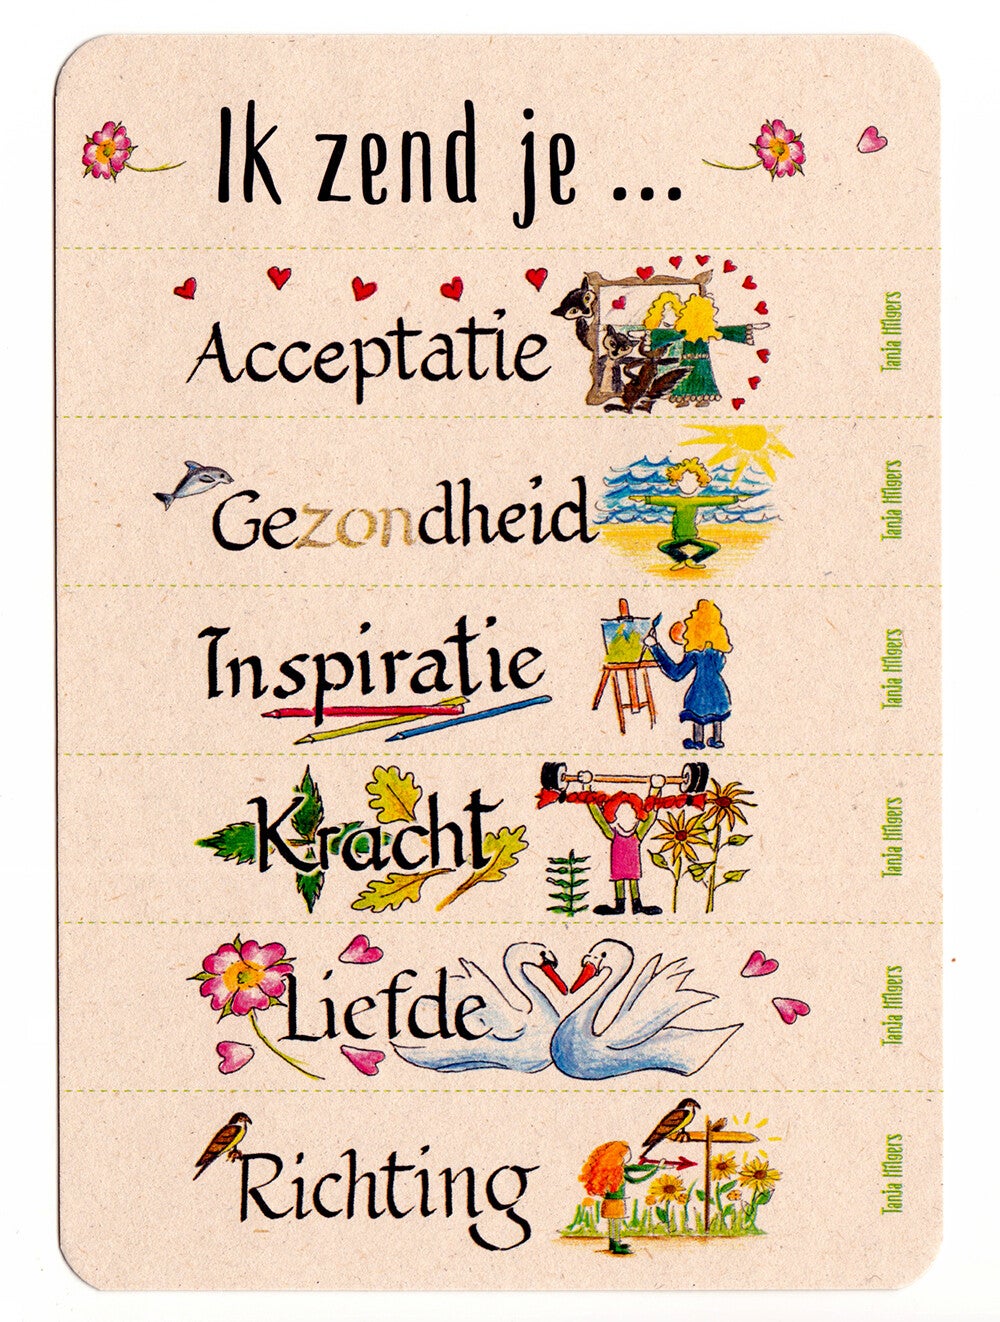 Ik zend je ...
Acceptatie
Tanja Hilgers
Gezondheid
Tanja Hilgers
Inspiratie
Tanja Hilgers
Kracht
Tanja Hilgers
Liefde
Tanja Hilgers
Richting
Tanja Hilgers